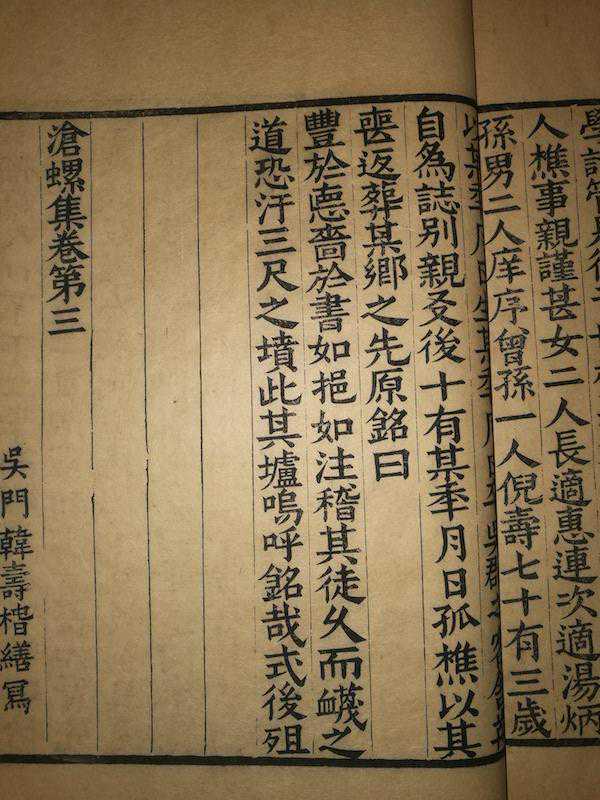 人樵事親謹甚女二人長適惠連次適湯炳
孫男二人庠序曾孫一人倪壽七十有三歲
自為誌別親友後十有某秊月日孤樵以其
喪返葬某鄉之先原銘曰
豐於悳嗇於書如挹如注稽其徒久而衊之
道恐汙三尺之墳此其壚嗚呼銘哉式後殂
滄螺集卷第三
吳門韓壽繕冩